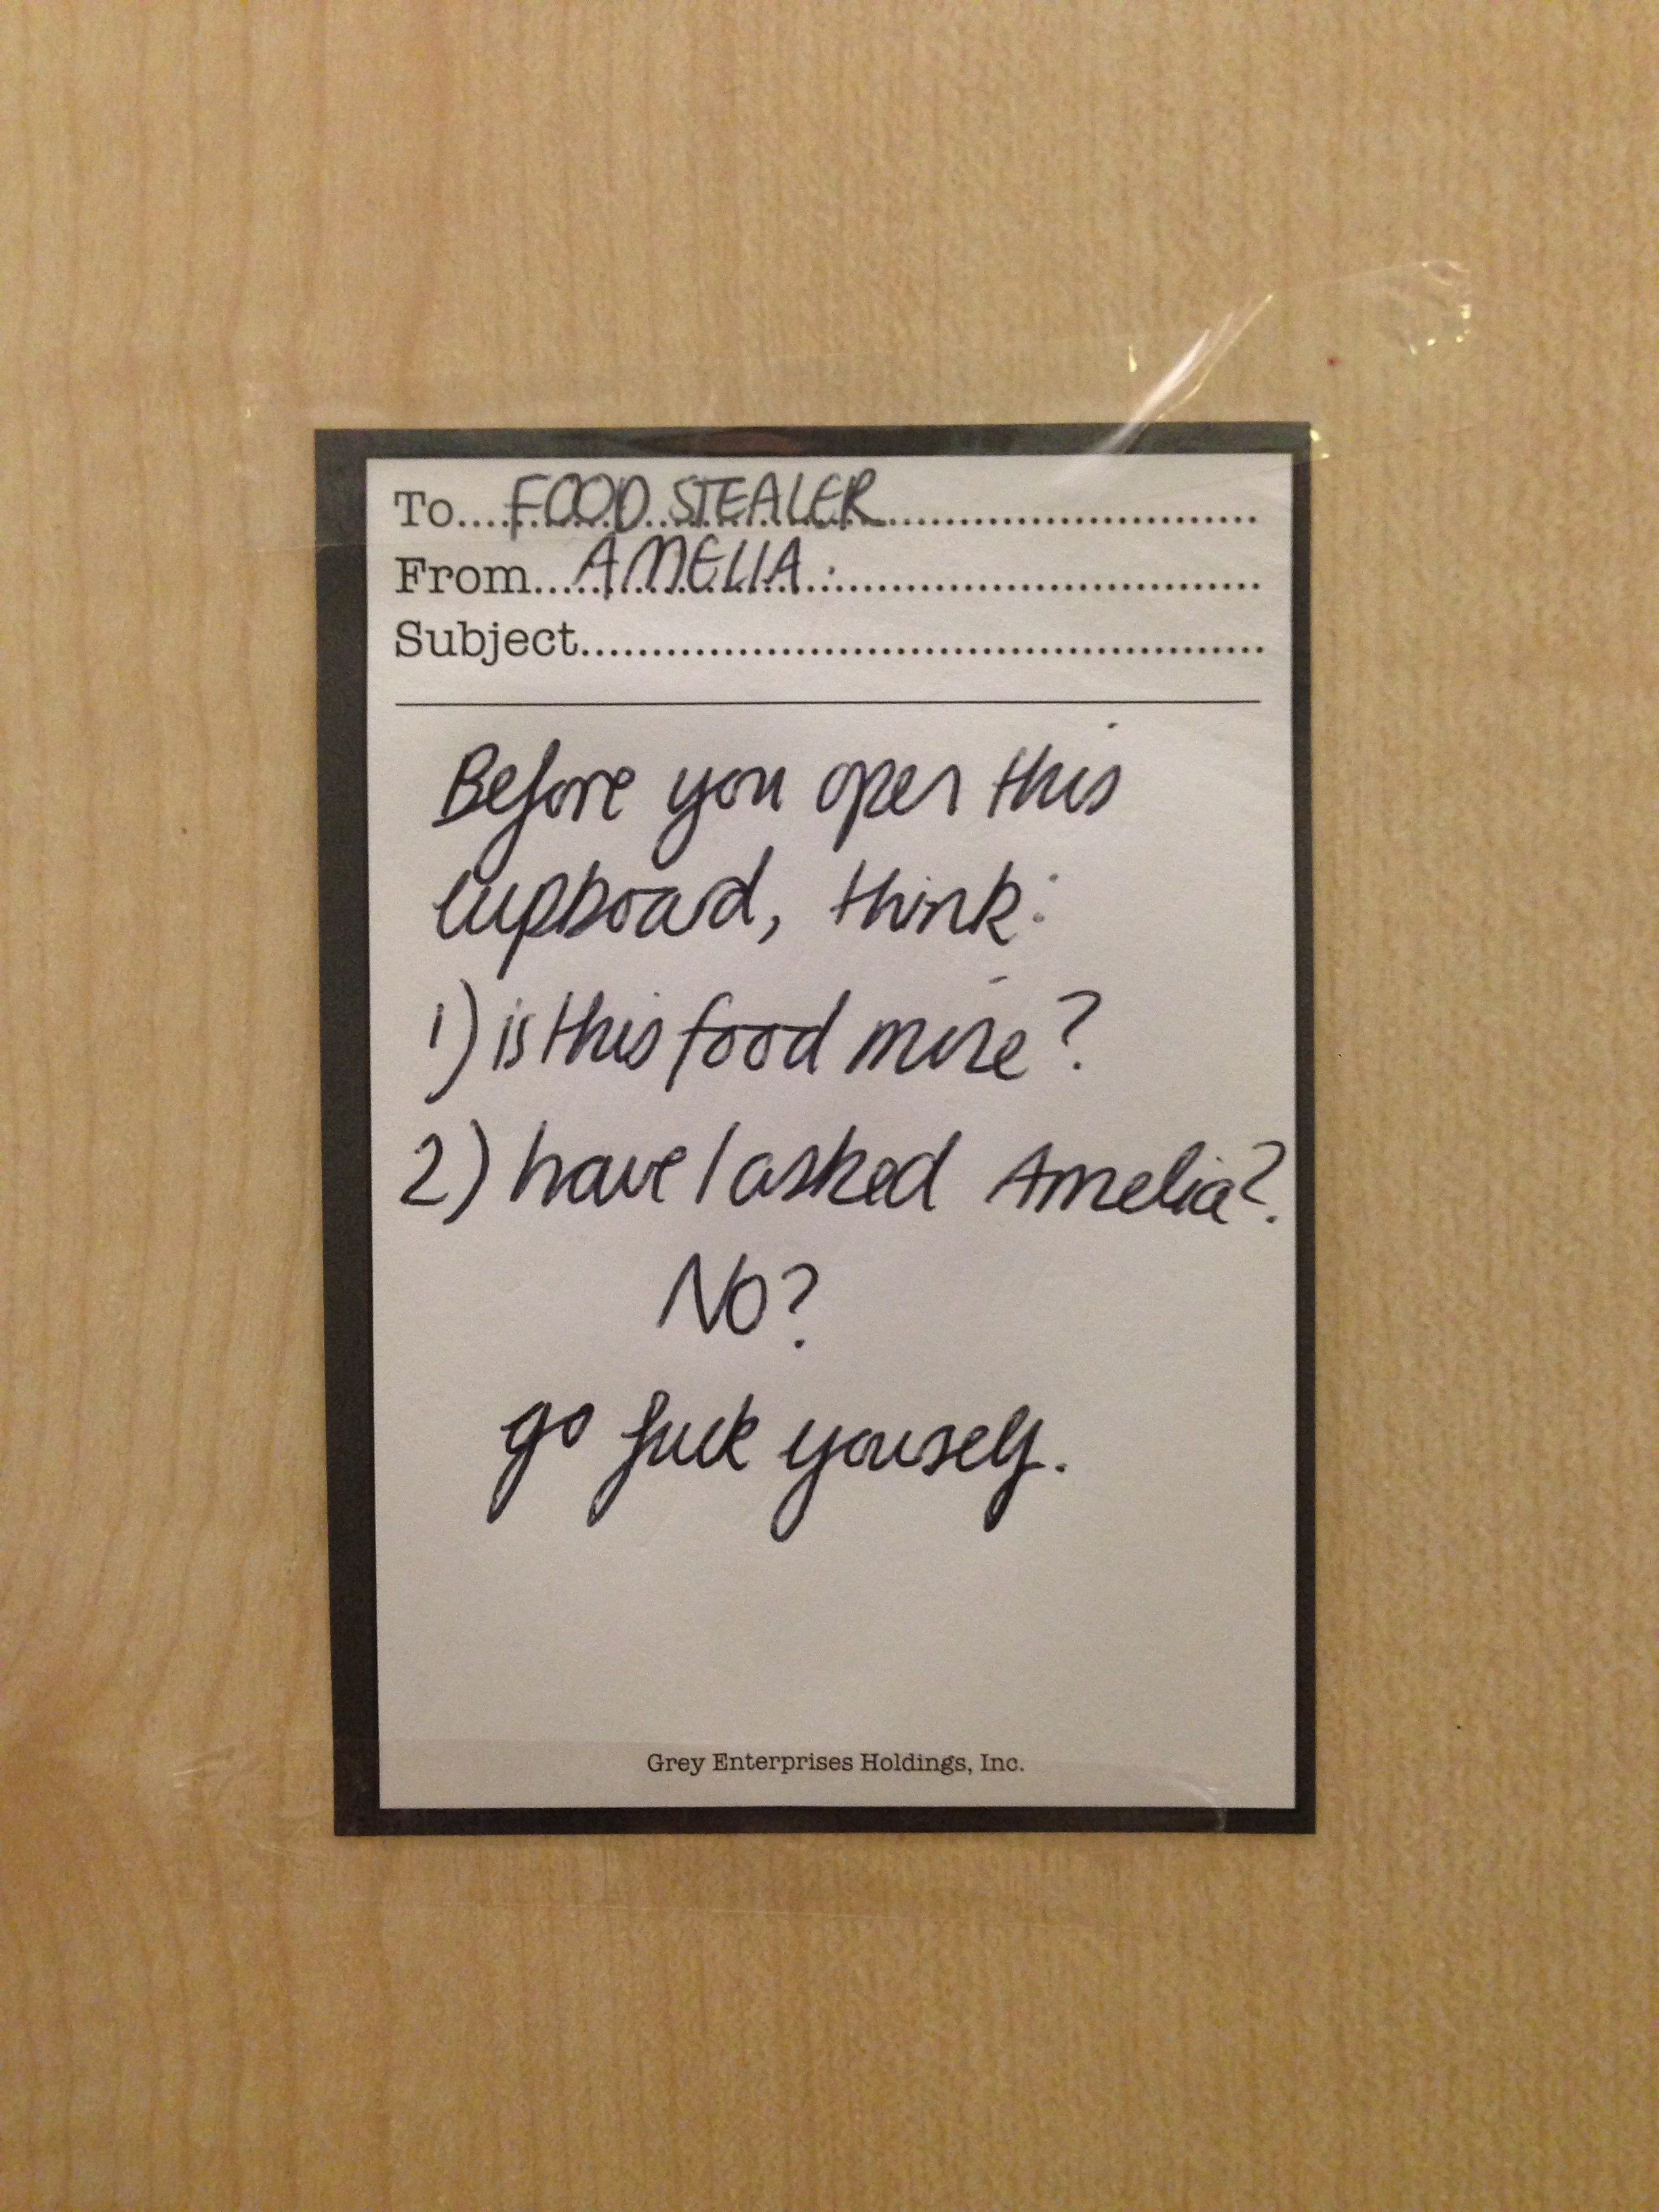 To....FOOD STEALER..............................
From...AMELIA..............................
Subject................................................
Before you open this
cupboard, think:
1) is this food mine?
2) have I asked Amelia?
No?
go fuck youself.
Grey Enterprises Holdings, Inc.